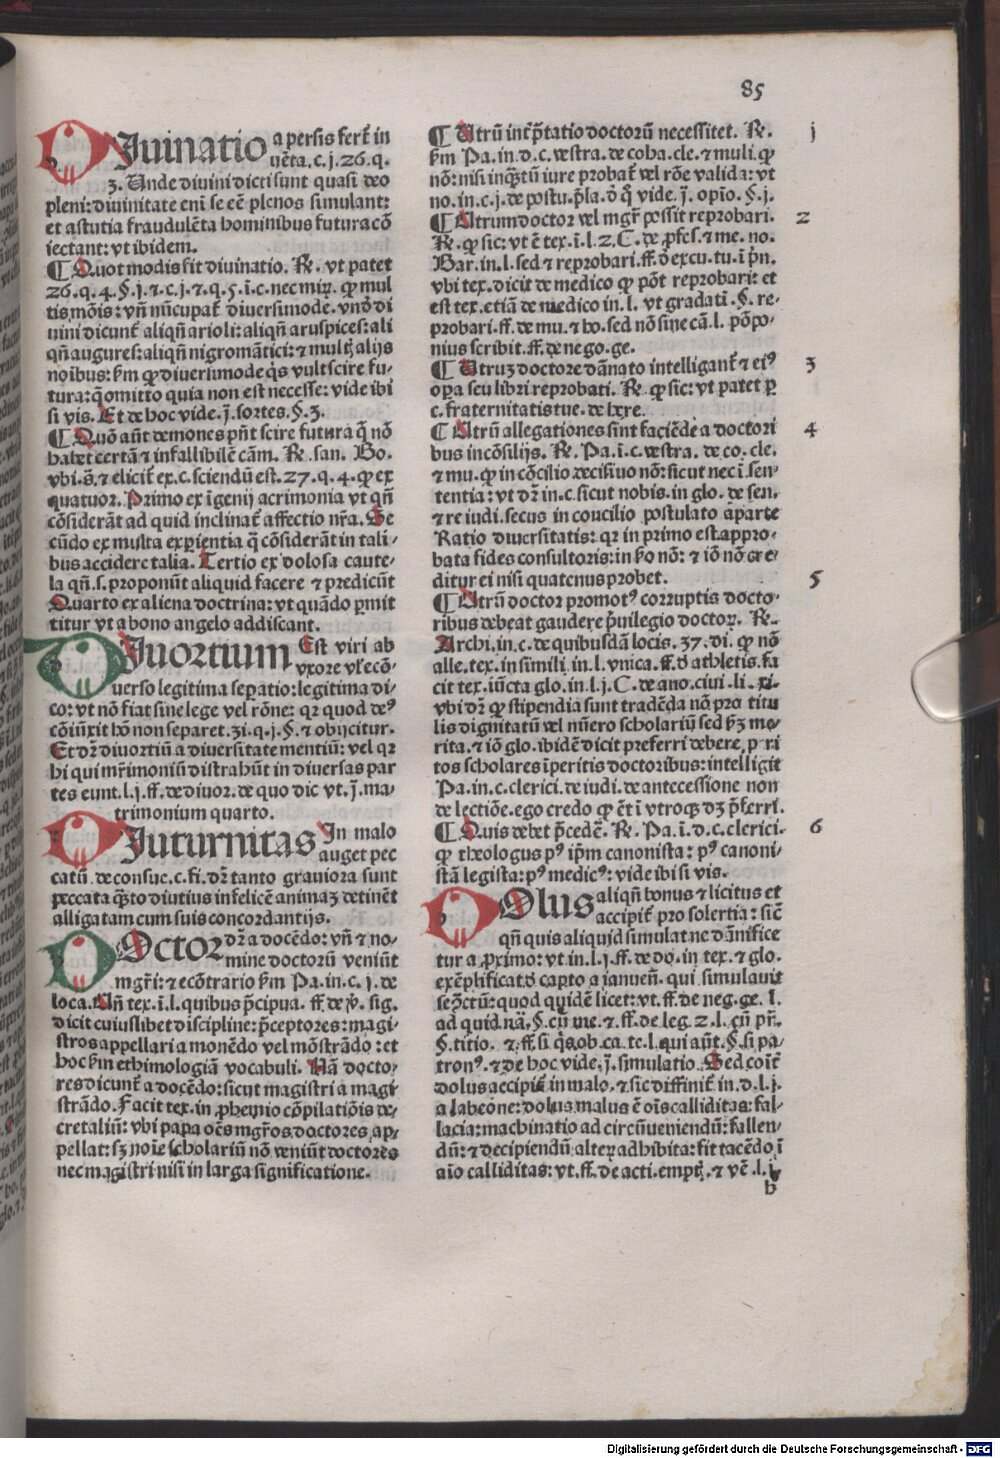 85
DIuinatio a persis fert̄ in
uēta. c. j. 26. q.
3. Unde diuini dicti sunt quasi deo
pleni: diuinitate enī se eē plenos simulant:
et astutia fraudulēta hominibus futura cō
iectant: vt ibidem.
¶ Quot modis fit diuinatio. R̄. vt patet
26. q. 4. §. j. ⁊ c. j. ⁊ q. 5. ī. c. nec mirꝝ. ꝙ mul
tis mōis: vn̄ nūcupat̄ diuersimode. vn̄ di
uini dicunt̄ aliqn̄ arioli: aliqn̄ aruspices: ali
qn̄ augures: aliqn̄ nigromātici: ⁊ multꝭ alijs
noībus: ẜm ꝙ diuersimode qͥs vult scire fu-
tura: q̄ omitto quia non est necesse: vide ibi
si vis. Et de hoc vide. j̄. sortes. §. 3.
¶ Quō aūt demones pn̄t scire futura q̄ nō
habēt certā ⁊ infallibilē cām. R̄. san. Bo.
vbi. s̄. ⁊ elicit̄ ex. c. sciendū est. 27. q. 4. ꝙ ex
quatuor. Primo ex īgenij acrimonia vt qn̄
cōsiderāt ad quid inclinat̄ affectio nr̄a. Se
cūdo ex multa experientia q̄ cōsiderāt in tali-
bus accidere talia. Tertio ex dolosa caute-
la qn̄. s. proponūt aliquid facere ⁊ predicūt
Quarto ex aliena doctrina: vt quādo ꝑmit
titur vt a bono angelo addiscant.
DIuortium Est viri ab
vxore vl' ecō-
uerso legitima seꝑatio: legitima di-
co: vt nō fiat sine lege vel rōne: qꝛ quod deꝰ
cōiūxit hō non separet. 3i. q. j. §. ⁊ obijcitur.
Et dꝛ̄ diuortiū a diuersitate mentiū: vel qꝛ
hi qui mr̄imoniū distrahūt in diuersas par
tes eunt. l. j. ff. de diuor. de quo dic vt. j̄. ma-
trimonium quarto.
DIuturnitas In malo
auget pec
catū. de consuc. c. fi. dꝛ̄ tanto grauiora sunt
peccata quāto diutius infelicē animaꝫ detinēt
alligatam cum suis concordantijs.
DOctor dꝛ̄ a docēdo: vn̄ ⁊ no-
mine doctorū veniūt
mgr̄i: ⁊ ecōtrario ẜm Pa. in. c. j. de
loca. An̄ tex. ī. l. quibus p̄cipua. ff. de v̄. sig.
dicit cuiuslibet discipline: p̄ceptores: magi-
stros appellari a monēdo vel mōstrādo: et
hoc ẜm ethimologiā vocabuli. Nā docto-
res dicunt̄ a docēdo: sicut magistri a magi
strādo. Facit tex. in ꝓhemio cōpilatiōis de-
cretaliū: vbi papa oēs mgr̄os doctores ap-
pellat: sꝫ noīe scholariū nō veniūt doctores
nec magistri nisi in larga significatione.
¶ Utrū int̄p̄tatio doctorū necessitet. R̄. j
ẜm Pa. in. d. c. vestra. de coha. cle. ⁊ muli. ꝙ
nō: nisi inquātū iure probat̄ vel rōe valida: vt
no. in. c. j. de postu. p̄la. ō q̄ vide. j̄. opio. §. j.
¶ Utrum doctor vel mgr̄ possit reprobari. 2
R̄. ꝙ sic: vt ē tex. ī. l. 2. C. de ꝓfes. ⁊ me. no.
Bar. in. l. sed ⁊ reprobari. ff. ō excu. tu. ī pn̄.
vbi tex. dicit de medico ꝙ pōt reprobari: et
est tex. etiā de medico in. l. vt gradatī. §. re-
probari. ff. de mu. ⁊ ho. sed nō sine cā. l. pōpo-
nius scribit. ff. de nego. ge.
¶ Utruꝫ doctore dānato intelligant̄ ⁊ eiꝰ 3
oꝑa seu libri reprobati. R̄. ꝙ sic: vt patet ꝑ
c. fraternitatis tue. de here.
¶ Utrū allegationes sint faciēde a doctori 4
bus in cōsilijs. R̄. Pa. ī. c. vestra. de co. cle.
⁊ mu. ꝙ in cōcilio decisiuo nō: sicut nec ī sen-
tentia: vt dꝛ̄ in. c. sicut nobis. in glo. de sen.
⁊ re iudi. secus in concilio postulato a parte
Ratio diuersitatis: qꝛ in primo est appro-
bata fides consultoris: in ẜo nō: ⁊ iō nō cre-
ditur ei nisi quatenus probet. 5
¶ Utrū doctor promotꝰ corruptis docto-
ribus debeat gaudere p̄uilegio doctoꝝ. R̄.
Archi. in. c. de quibusdā locis. 37. di. ꝙ nō
alle. tex. in simili. in. l. vnica. ff. ō athletis. fa
cit tex. iūcta glo. in. l. j. C. de ano. ciui. li. xi.
vbi dꝛ̄ ꝙ stipendia sunt tradēda nō pro titu
lis dignitatū vel nūero scholariū sed ẜꝫ me-
rita. ⁊ iō glo. ibidē dicit preferri debere, peri
tos scholares īperitis doctoribus: intelligit
Pa. in. c. clerici. de iudi. de antecessione non
de lectiōe. ego credo ꝙ ēt ī vtroqꝫ dꝫ p̄ferri.
¶ Quis debet p̄cedē. R̄. Pa. ī. d. c. clerici. 6
ꝙ theologus pꝰ ip̄m canonista: pꝰ canoni-
stā legista: pꝰ medicꝰ: vide ibi si vis.
DOlus aliqn̄ bonus ⁊ licitus et
accipit̄ pro solertia: sicē
qn̄ quis aliquid simulat ne dānifice
tur a ꝓximo: vt in. l. j. ff. de do. in tex. ⁊ glo.
exēplificat ō capto a ianuen̄. qui simulauit
se ꝺctū: quod quidē licet: vt. ff. de neg. ge. l.
ad quid nā. §. cū me. ⁊ ff. de leg. 2. l. cū pr̄.
§. titio. ⁊ ff. si qͥs ob. ca. tc. l. qui aūt. §. si pa-
tronꝰ. ⁊ de hoc vide. j̄. simulatio. Sed cōit̄
dolus accipit̄ in malo. ⁊ sic diffinit̄ in. d. l. j.
a labeone: dolus malus ē oīs calliditas: fal-
lacia: machinatio ad circūueniendū: fallen-
dū: ⁊ decipiendū alteꝝ adhibita: fit tacēdo ī
aīo calliditas: vt. ff. de acti. emptꝭ. ⁊ vē. l. j.
b
Digitalisierung gefördert durch die Deutsche Forschungsgemeinschaft - DFG